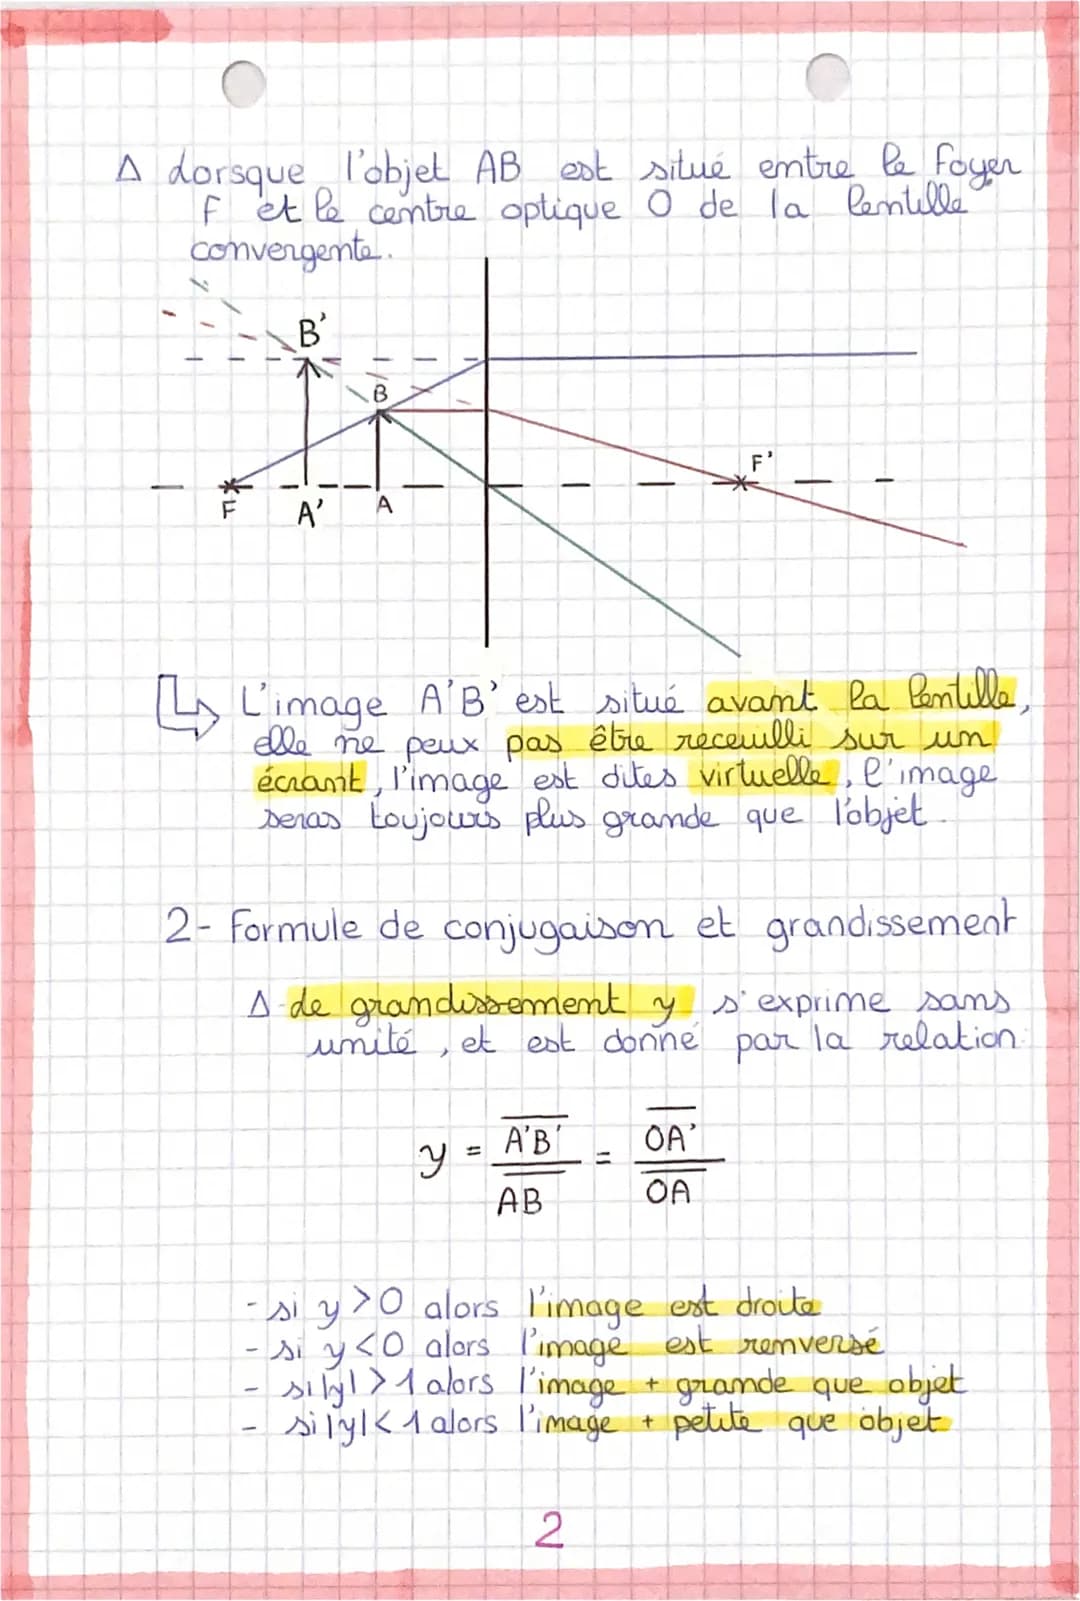 Δ Lorsque l'objet AB est situé entre le foyer
F et le centre optique O de la lentille
convergente.
B'
B
F'
F
A'
A
↳ L'image A'B' est situé avant la lentille,
elle ne peux pas être receuilli sur un
écrant, l'image est dites virtuelle, l'image
seras toujours plus grande que l'objet.
2- Formule de conjugaison et grandissement
Δ Le grandissement γ s'exprime sans
unité, et est donné par la relation:
γ = A̅'̅B̅'̅ / A̅B̅ = O̅A̅'̅ / O̅A̅
- si γ > 0 alors l'image est droite
- si γ < 0 alors l'image est renversé
- si |γ| > 1 alors l'image + grande que objet
- si |γ| < 1 alors l'image + petite que objet
2